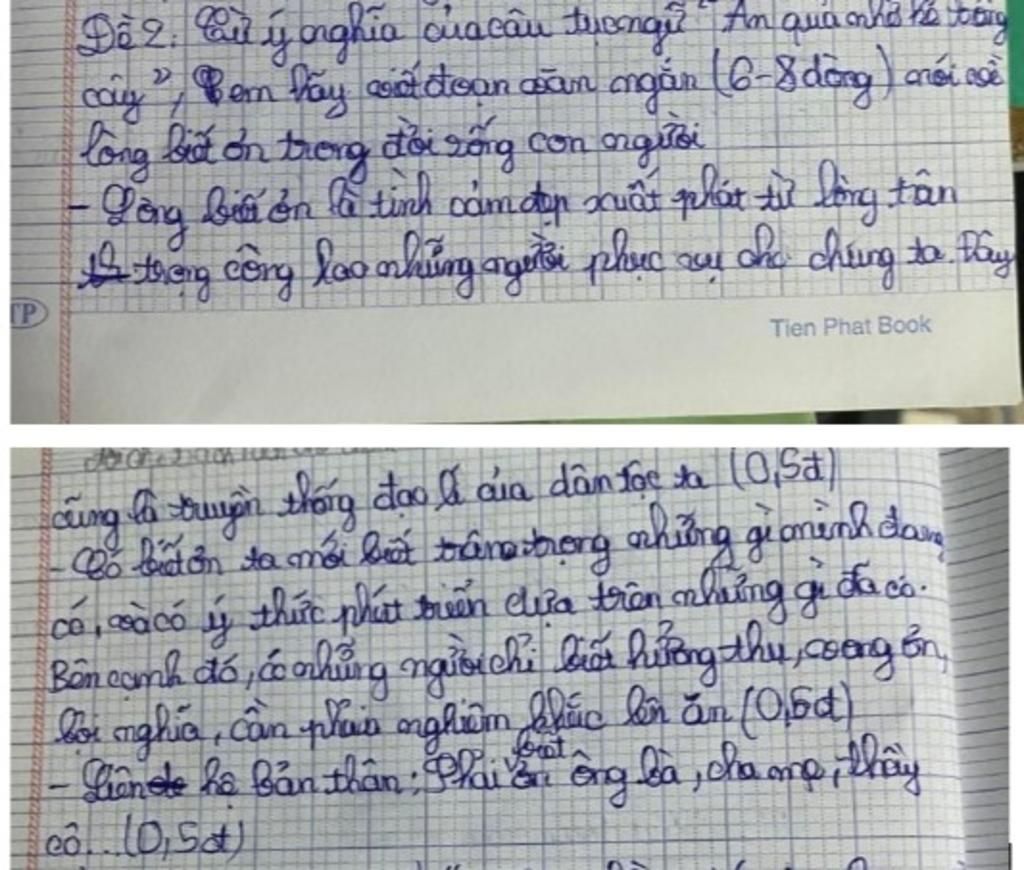 Đề 2: Từ ý nghĩa của câu tục ngữ "Ăn quả nhớ kẻ trồng
cây", em hãy viết đoạn văn ngắn (6-8 dòng) nói về
lòng biết ơn trong đời sống con người
- Lòng biết ơn là tình cảm đẹp xuất phát từ lòng trân
trọng công lao những người phục vụ cho chúng ta. Đây
TP
Tien Phat Book
cũng là truyền thống đạo lí của dân tộc ta (0,5đ)
- Có biết ơn ta mới biết trân trọng những gì mình đang
có, và có ý thức phát triển dựa trên những gì đã có.
Bên cạnh đó, có những người chỉ biết hưởng thụ, vong ơn,
bội nghĩa, cần phải nghiêm khắc lên án (0,5đ)
- Liên hệ bản thân: Phải biết ơn ông bà, cha mẹ, thầy
cô... (0,5đ)